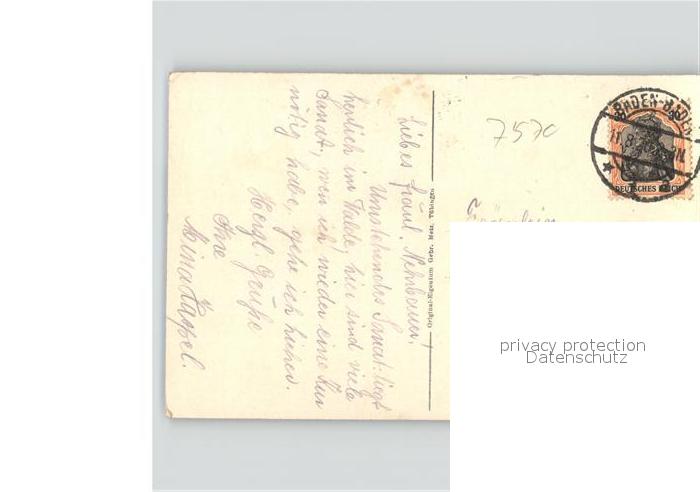 Liebes Fräul. Nehrbauer,
Umstehendes Sanat. liegt
herrlich im Walde, hier sind viele
Sanat., wen ich wieder eine Kur
nötig habe, gehe ich hierher.
Herzl. Grüße
Ihre
Mina Kappel.
Original-Eigentum Gebr. Metz, Tübingen
7570
BADEN-BADEN
DEUTSCHES REICH
privacy protection
Datenschutz